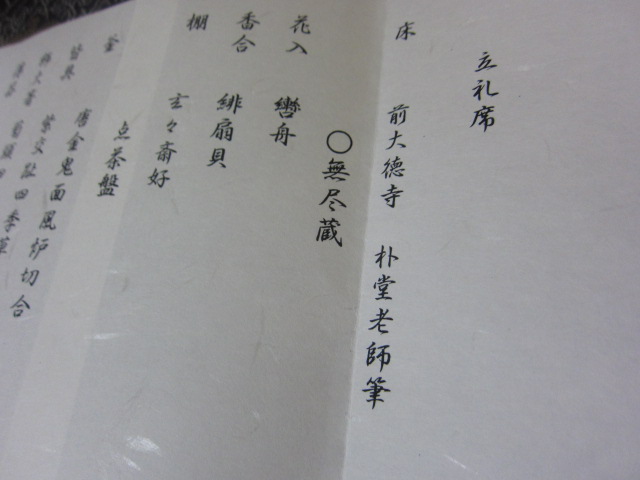 立礼席
床 前大徳寺 朴堂老師筆
〇無尽蔵
花入 轡舟
香合 緋扇貝
棚 玄々斎好
点茶盤
釜 唐金鬼面風炉切合
皆具 紫交趾四季草